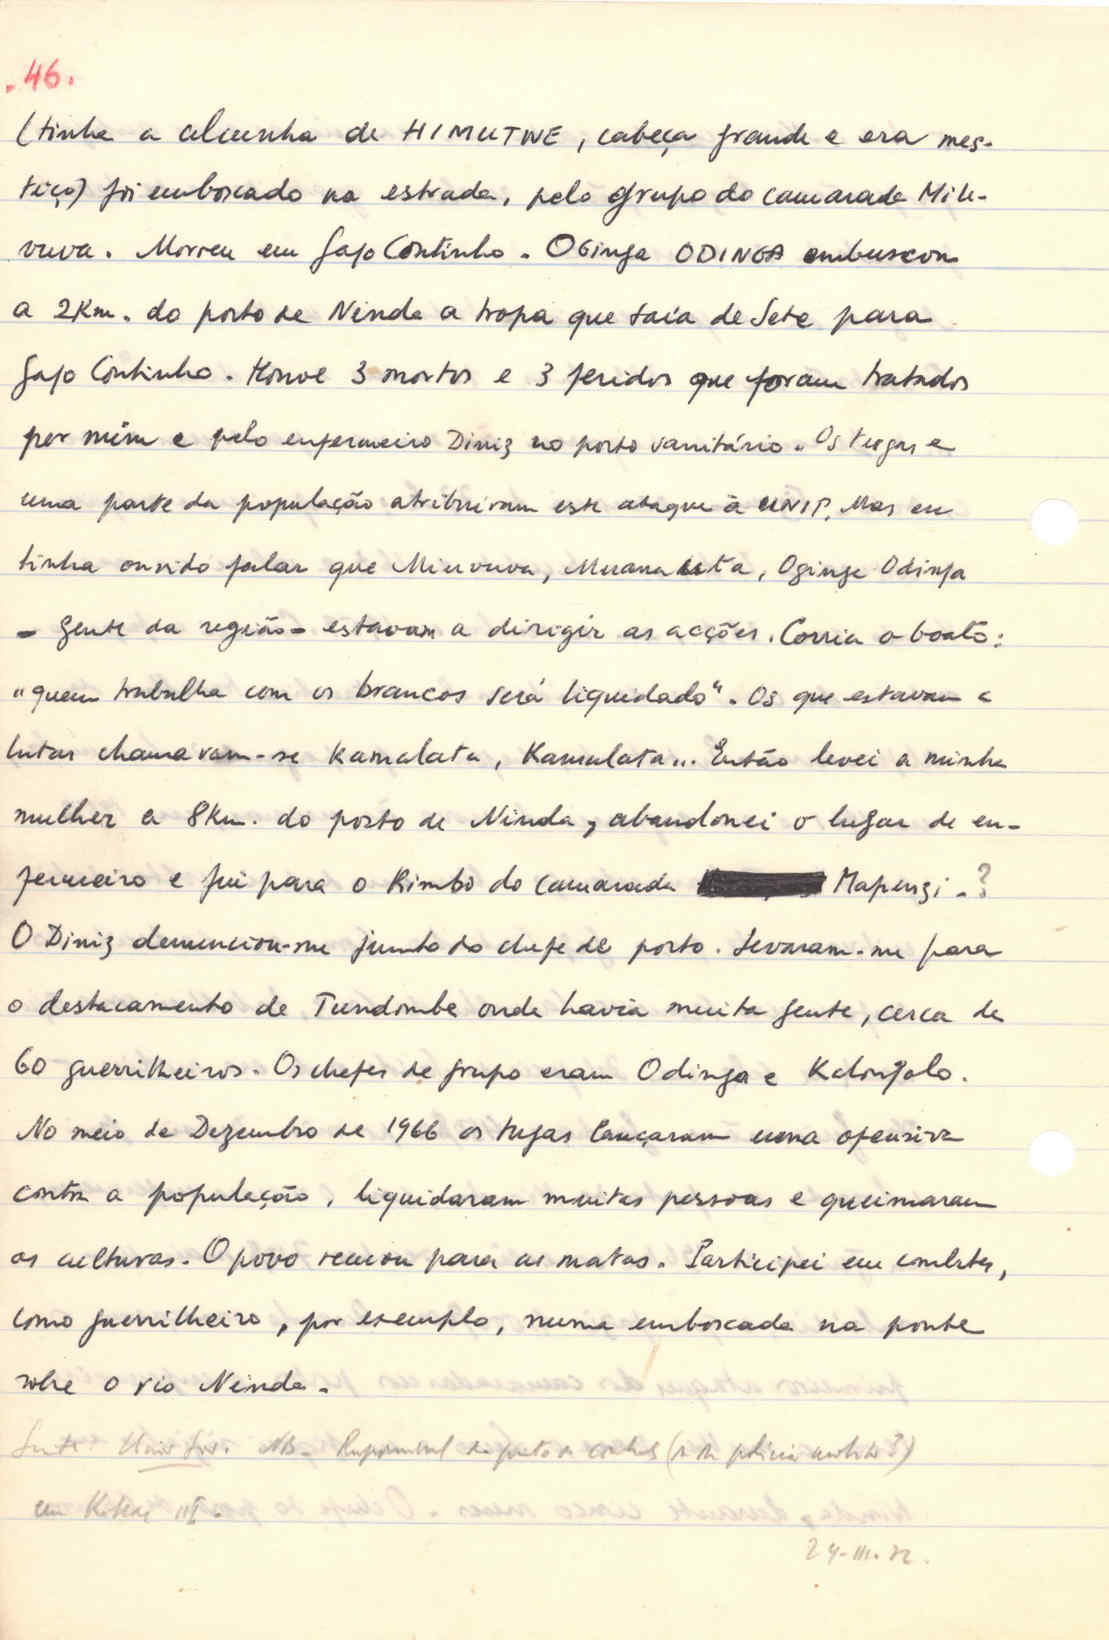 .46.
(tinha a alcunha de HIMUTWE, cabeça grande e era mes-
tiço) foi emboscado na estrada, pelo grupo do camarada Miu-
vuva. Morreu em Gago Coutinho. Oginga ODINGA embuscou
a 2Km. do posto de Ninda a tropa que saía de Sete para
Gago Coutinho. Houve 3 mortos e 3 feridos que foram tratados
por mim e pelo enfermeiro Diniz no posto sanitário. Os tugas e
uma parte da população atribuiram este ataque à UNIP. Mas eu
tinha ouvido falar que Miuvuva, Muanauta, Oginga Odinga
- gente da região - estavam a dirigir as acções. Corria o boato:
"quem trabalha com os brancos será liquidado". Os que estavam a
lutar chamavam-se Kamalata, Kamalata... Então levei a minha
mulher a 8Km. do posto de Ninda, abandonei o lugar de en-
fermeiro e fui para o Kimbo do camarada Mapenzi. ?
O Diniz denunciou-me junto do chefe de posto. Levaram-me para
o destacamento de Tundombe onde havia muita gente, cerca de
60 guerrilheiros. Os chefes de grupo eram Odinga e Kalongolo.
No meio de Dezembro de 1966 os tugas lançaram uma ofensiva
contra a população, liquidaram muitas pessoas e queimaram
as culturas. O povo recuou para as matas. Participei em combates,
como guerrilheiro, por exemplo, numa emboscada na ponte
sobre o rio Ninda.
NB-
em
24-III-72.